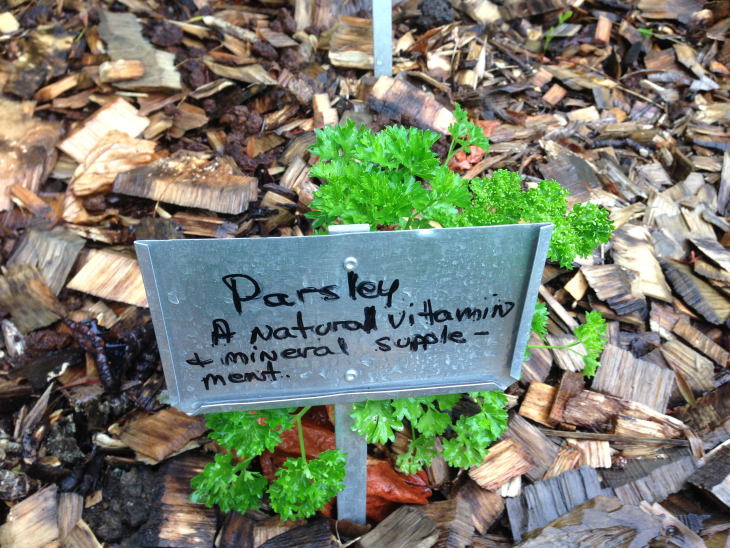 Parsley
A Natural vittamin
+ mineral supple-
ment.